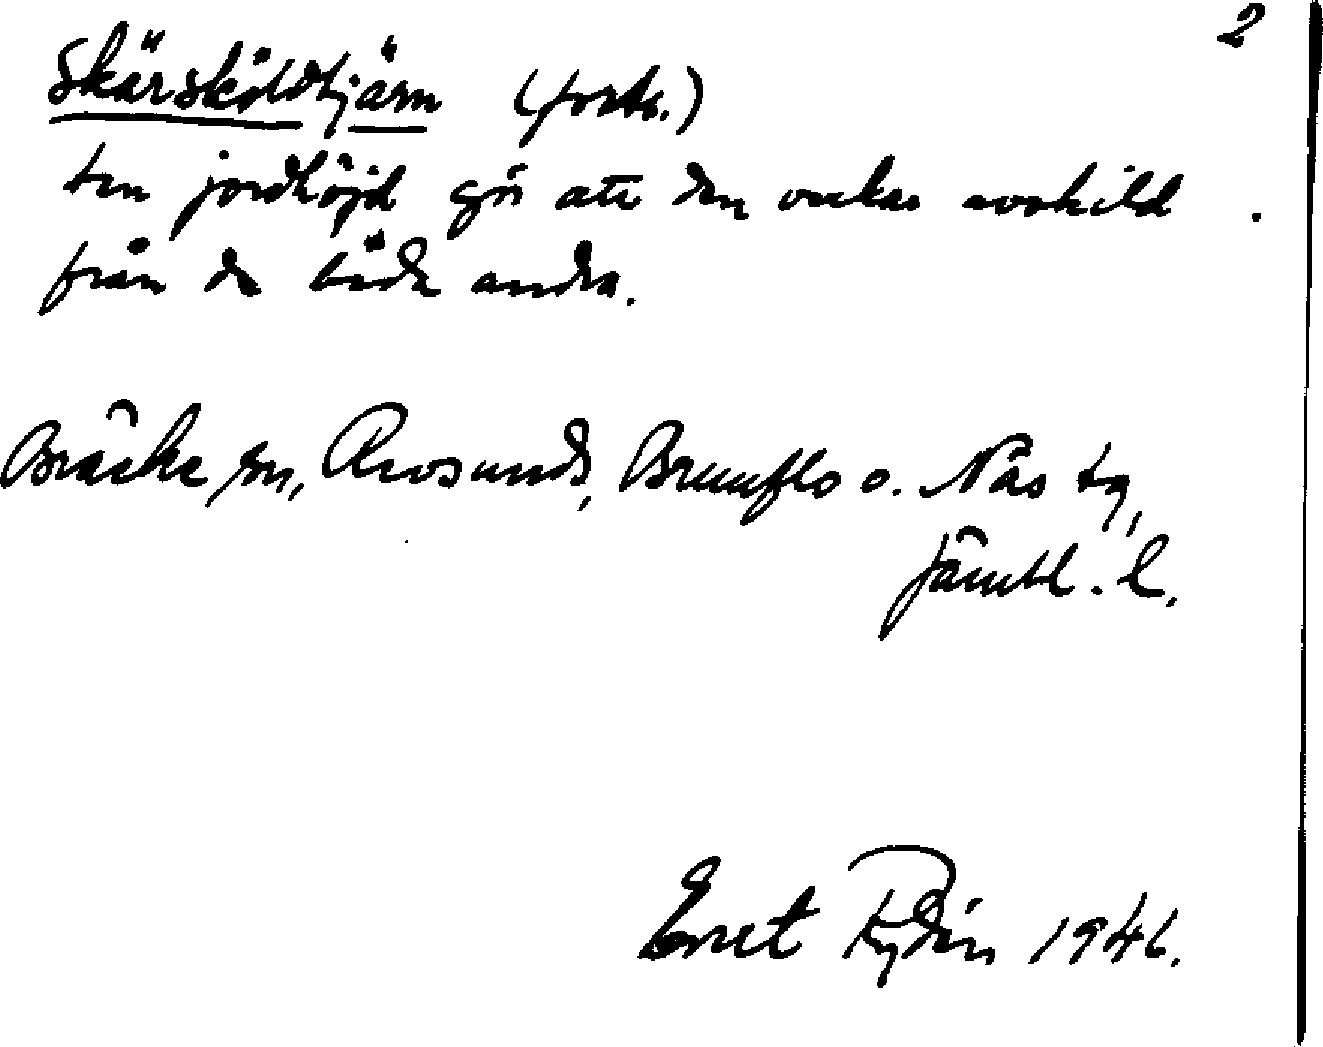 2
Skärsköldtjärn (forts.)
ten jordhöjd gör att den verkar avskild.
från de båda andra.
Bräcke sn, Revsunds, Brunflo o. Näs tg,
Jämtl. l.
Ernst Rydén 1946.